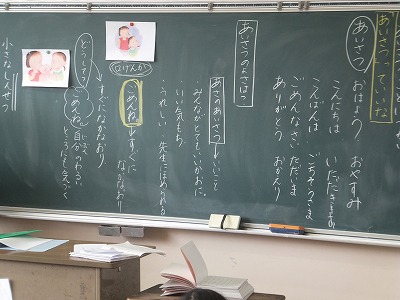 あいさつっていいな
あいさつ
おはよう　おやすみ
こんにちは　いただきます
こんばんは　ごちそうさま
ごめんなさい　ただいま
ありがとう　おかえり
あいさつのよさは？
あさのあいさつ→いいこと
みんながとてもいいかおに。
いい気もち
うれしい　先生にほめられる
口げんか
ごめんね→すぐに
なかなおり
すぐなかなおり
どうして？
ごめんね。自分のわるい
ところにも気づく
小さなしんせつ